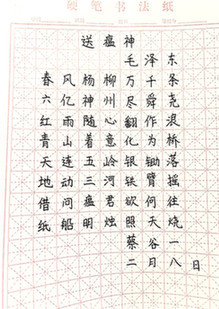 硬笔书法纸
送瘟神
毛泽东
春风杨柳万千条
六亿神州尽舜尧
红雨随心翻作浪
青山着意化为桥
天连五岭银锄落
地动三河铁臂摇
借问瘟君欲何往
纸船明烛照天烧
蔡谷一
二月八日